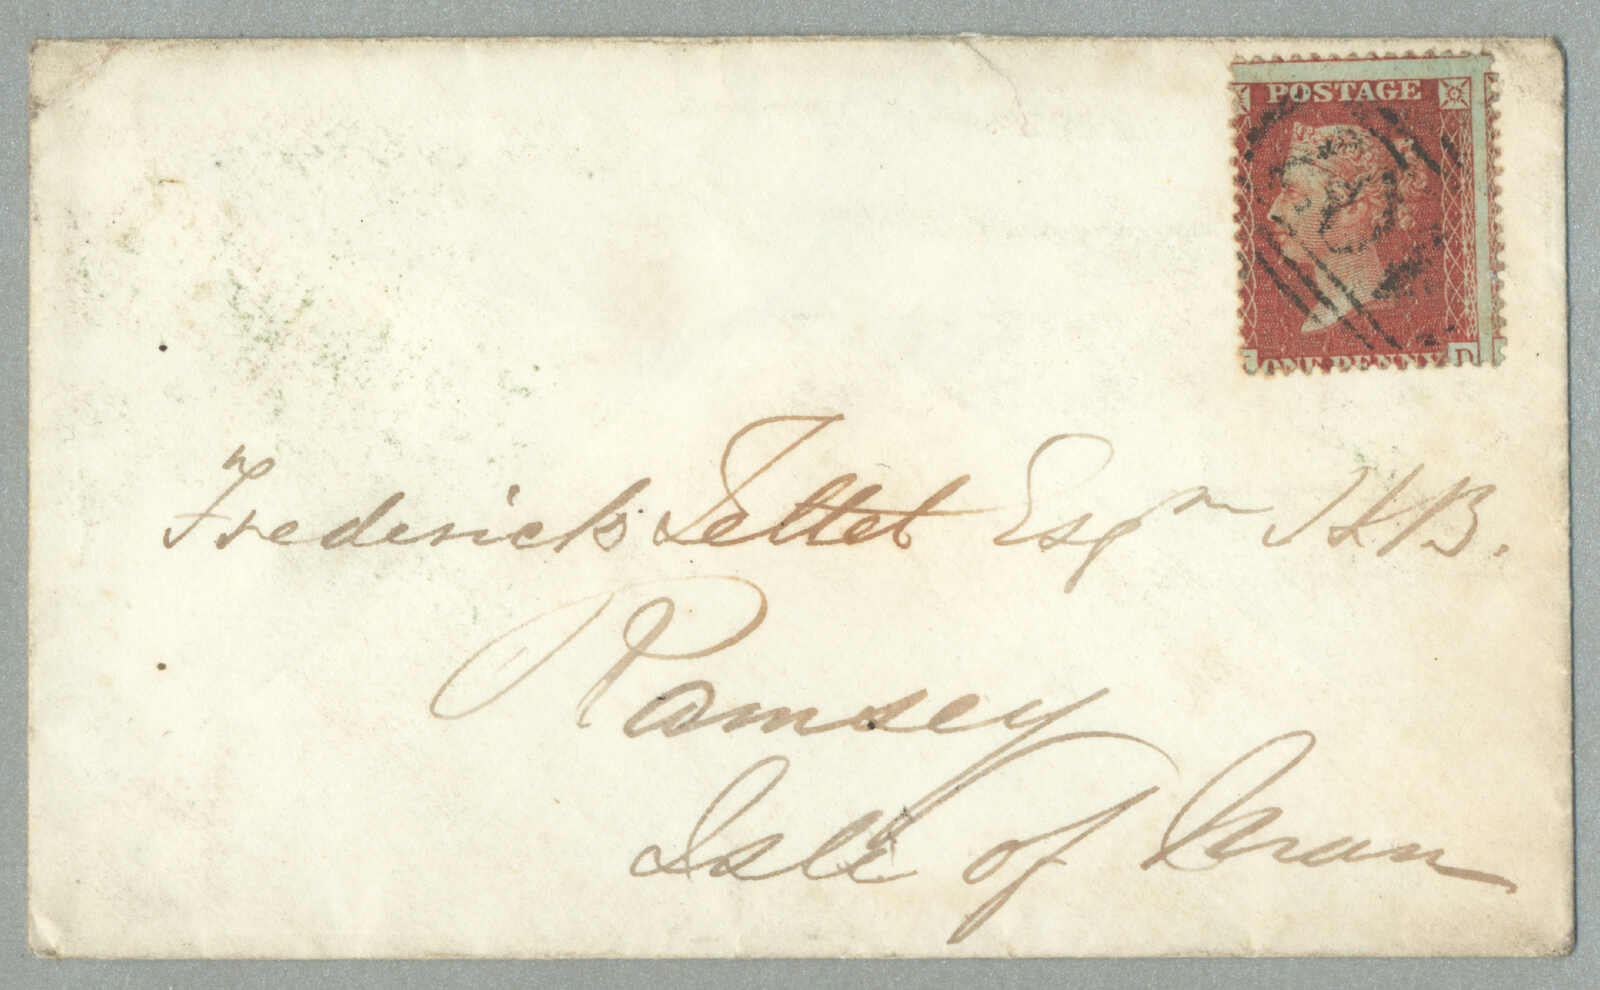 POSTAGE
ONE PENNY D
Frederick Tellet Esqr H.K.
Ramsey
Isle of Man